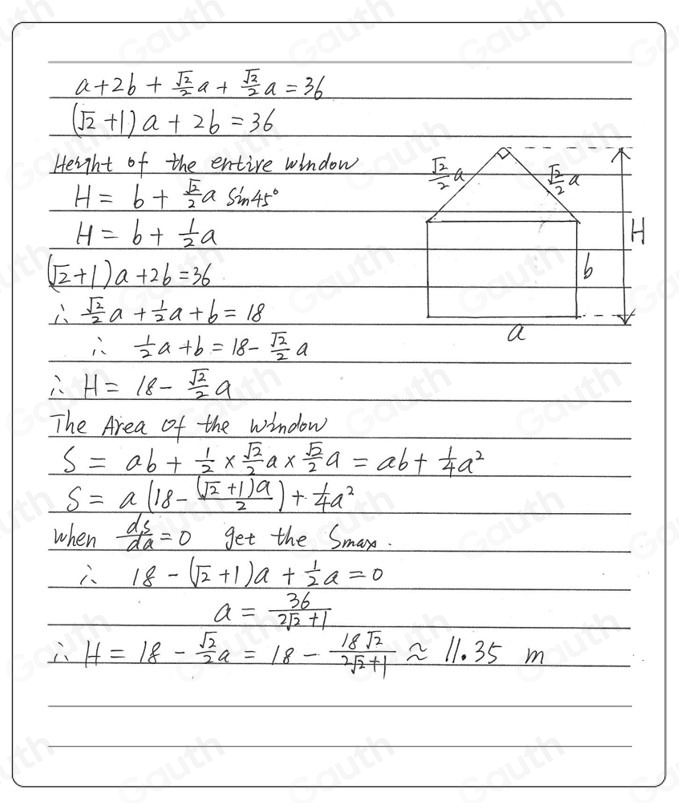 a + 2b + √2/2 a + √2/2 a = 36
(√2 + 1) a + 2b = 36
Height of the entire window
H = b + √2/2 a Sin45°
H = b + 1/2 a
(√2 + 1) a + 2b = 36
∴ √2/2 a + 1/2 a + b = 18
∴ 1/2 a + b = 18 - √2/2 a
∴ H = 18 - √2/2 a
The Area of the window
S = ab + 1/2 × √2/2 a × √2/2 a = ab + 1/4 a²
S = a (18 - (√2 + 1)a/2) + 1/4 a²
when ds/da = 0 get the Smax.
∴ 18 - (√2 + 1)a + 1/2 a = 0
a = 36/(2√2 + 1)
∴ H = 18 - √2/2 a = 18 - 18√2/(2√2 + 1) ≈ 11.35 m
√2/2 a
√2/2 a
H
b
a
Gauth